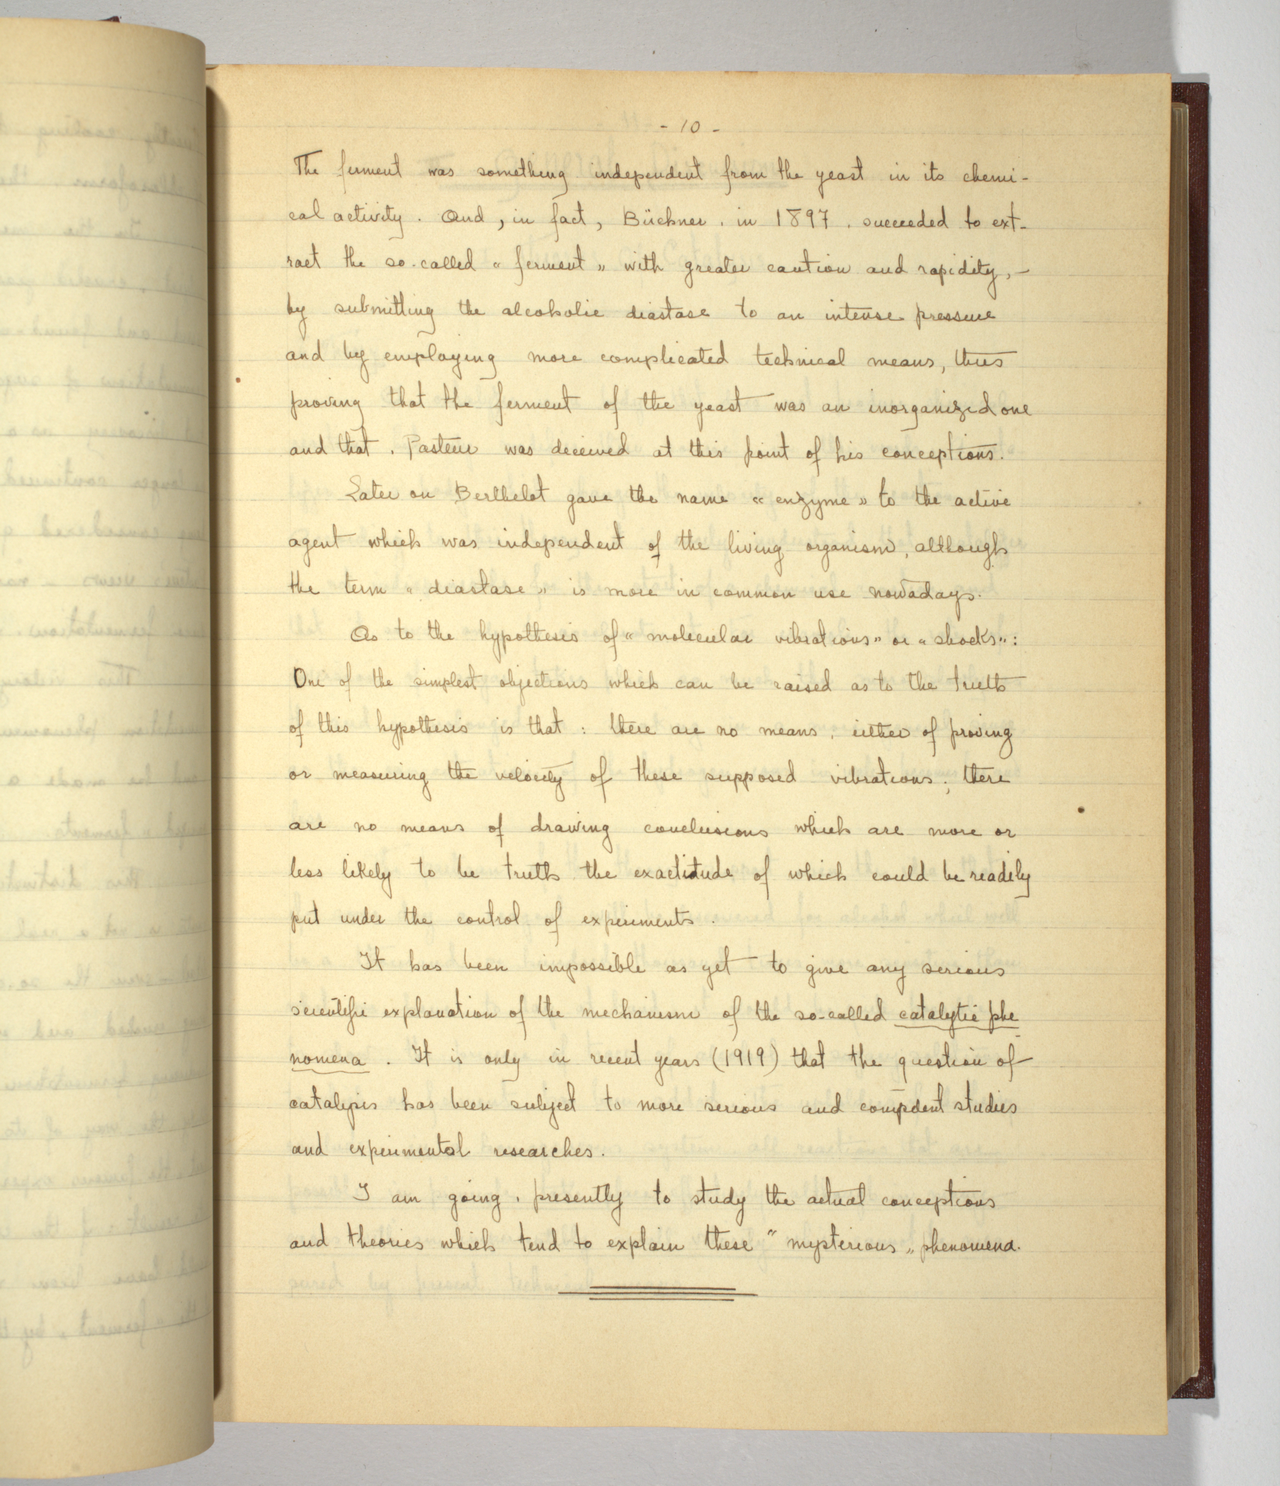 - 10 -
The ferment was something independent from the yeast in its chemi-
cal activity. And, in fact, Büchner. in 1897. succeeded to ext-
ract the so-called « ferment » with greater caution and rapidity, -
by submitting the alcoholic diastase to an intense pressure
and by employing more complicated technical means, thus
proving that the ferment of the yeast was an inorganized one
and that. Pasteur was deceived at this point of his conceptions.
Later on Berthelot gave the name « enzyme » to the active
agent which was independent of the living organism, although
the term « diastase » is more in common use nowadays.
As to the hypothesis of « molecular vibrations » or « shocks »:
One of the simplest objections which can be raised as to the truth
of this hypothesis is that: there are no means, either of proving
or measuring the velocity of these supposed vibrations; there
are no means of drawing conclusions which are more or
less likely to be truth the exactitude of which could be readily
put under the control of experiments.
It has been impossible as yet to give any serious
scientific explanation of the mechanism of the so-called catalytic phe
nomena. It is only in recent years (1919) that the question of
catalysis has been subject to more serious and competent studies
and experimental researches.
I am going, presently to study the actual conceptions
and theories which tend to explain these " mysterious „ phenomena.